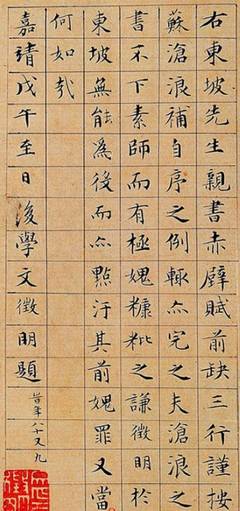 右東坡先生親書赤壁賦前缺三行謹按
蘇滄浪補自序之例輙亦完之夫滄浪之
書不下素師而有極媿糠粃之謙徵明於
東坡無能為後而亦點汙其前媿罪又當
何如哉
嘉靖戊午至日後學文徵明題
旹年八十又九